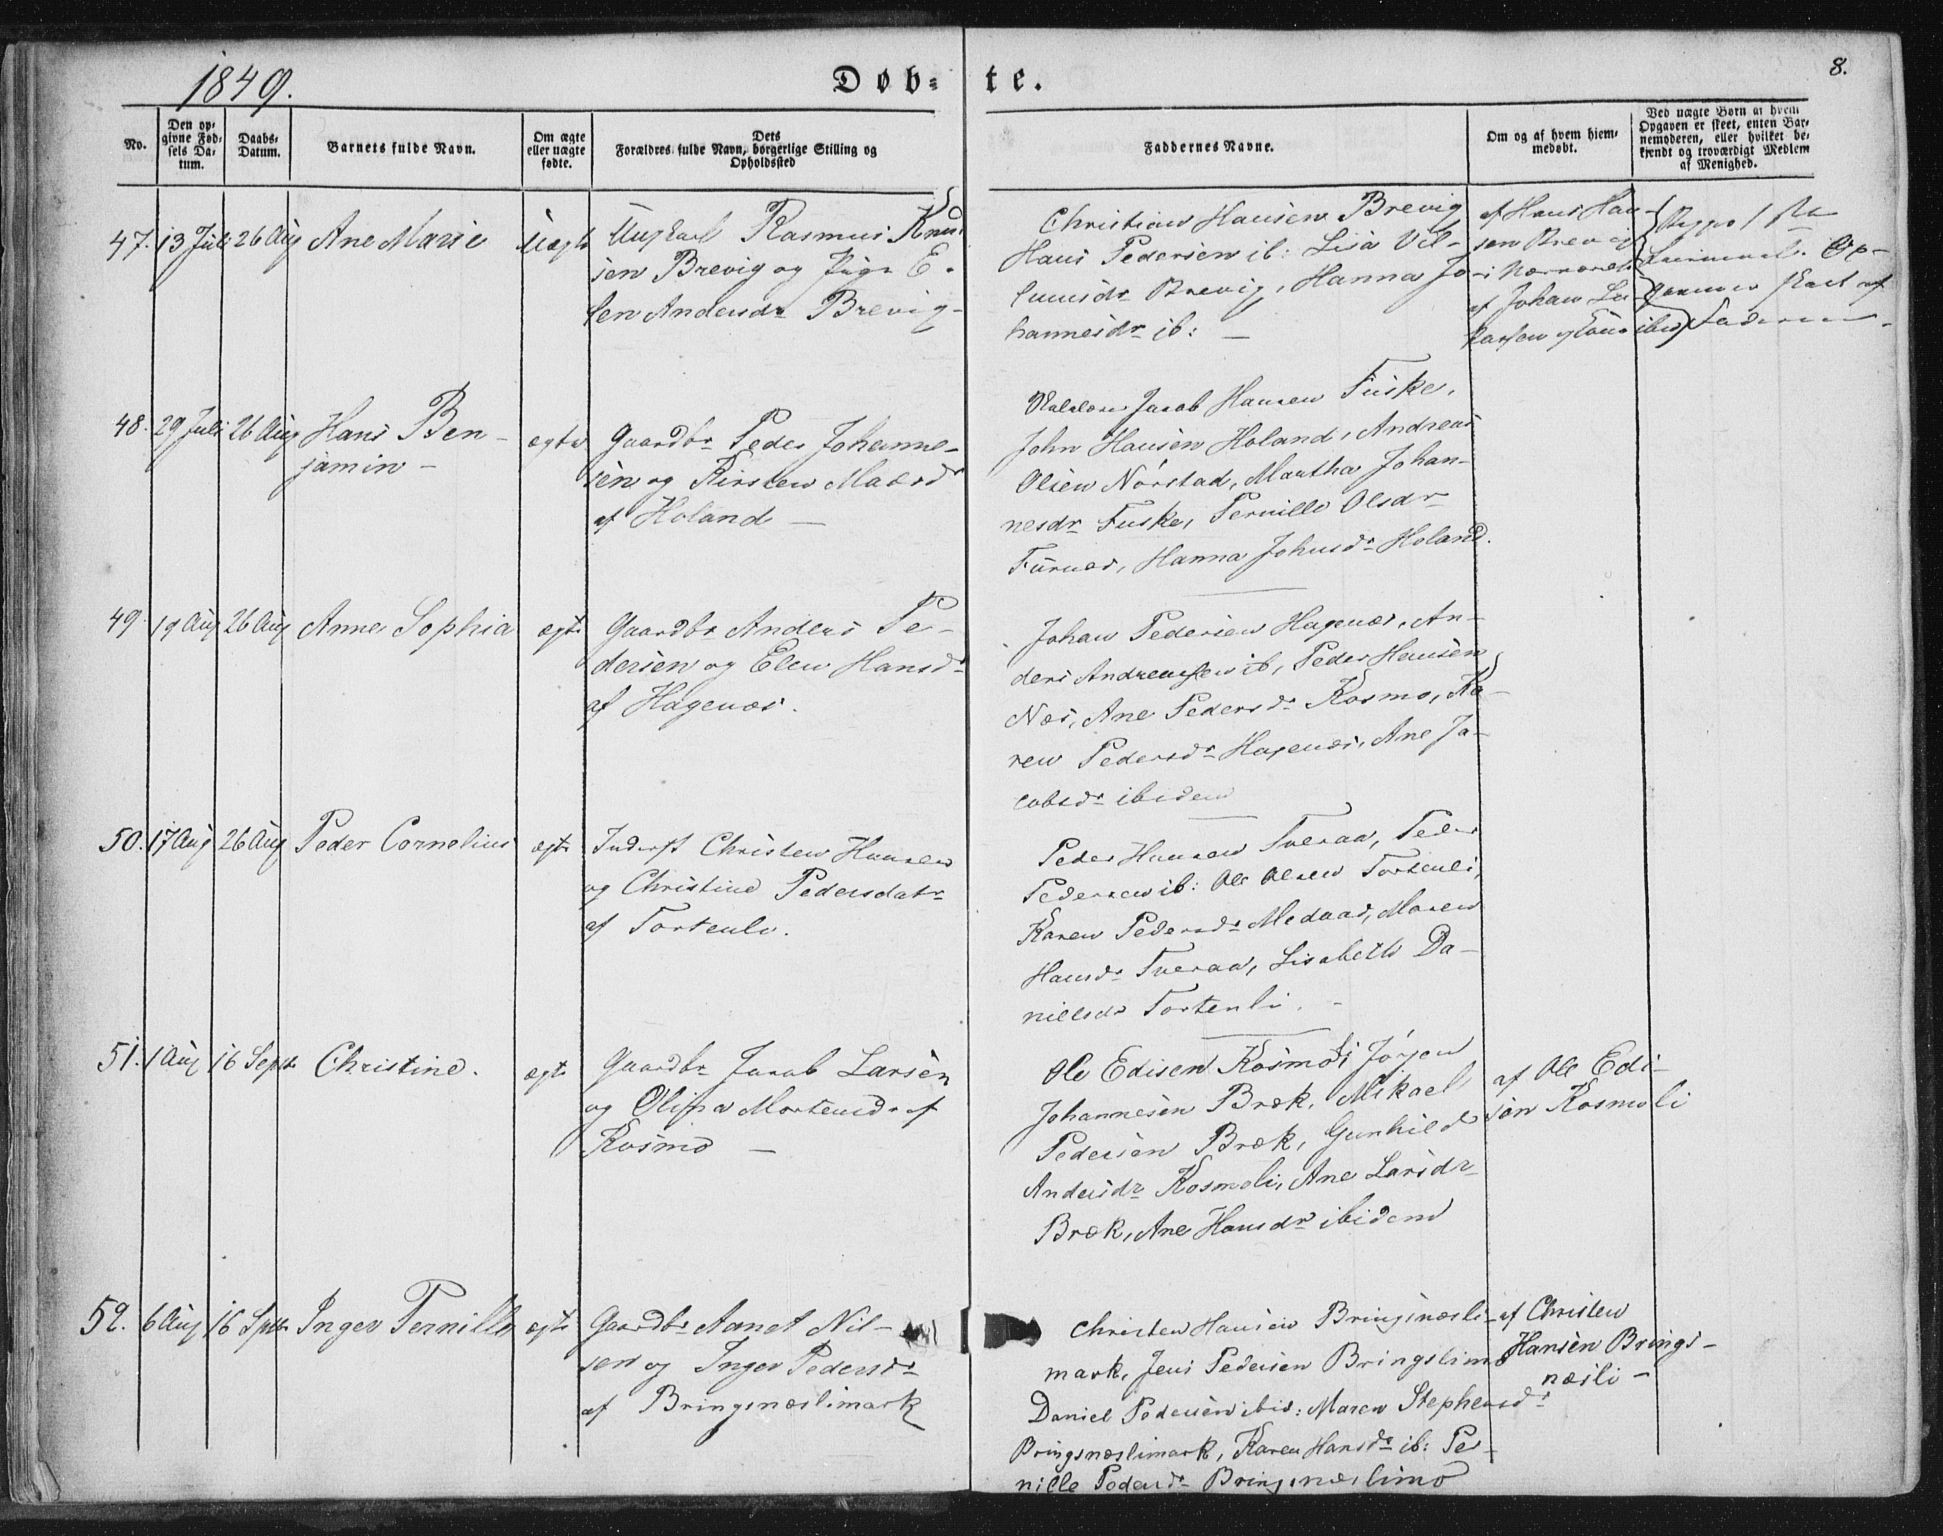 1849.
Døb-
te.
8.
No.
Den op-
givne Fød-
sels Da-
tum.
Daabs-
Datum.
Barnets fulde Navn.
Om ægte
eller uægte
fødte.
Dets
Forældres fulde Navn, borgerlige Stilling og
Opholdssted
Faddernes Navne.
Om og af hvem hjem-
medøbt.
Ved uægte Børn af hvem
Opgaven er skeet, enten Bar-
nemoderen, eller hvilket be-
kjendt og troværdigt Medlem
af Menighed.
47. 13 Juli 26 Aug Ane Marie
Uægte
Ungkarl Rasmus Knud
sen Brevig og Pige E-
len Andersdr Brevig-
Christian Hansen Brevig
Hans Pedersen ib: Lisa Vil-
lumsdr Brevig, Hanna Jo-
hannesdr ib: -
af Hans Han-
sen Brevig
i Nærværelse
af Johan
Opgaven skeet af
Faderen
48. 29 Juli 26 Aug Hans Ben-
jamin -
ægte
Gaardbr Peder Johanne-
sen og Kirsten Madsdr
af Holand -
Jacob Hansen Fuske,
John Hansen Holand, Andreas
Olsen Nørstad, Martha Johan-
nesdr Fuske, Pernille Olsdr
Furnes, Hanna Johnsdr Holand.
49. 19 Aug 26 Aug Anne Sophia
ægte
Gaardbr Anders Pe-
dersen og Elen Hansdr
af Hagenæs.
Johan Pedersen Hagenæs, An-
ders Andreassen ib, Peder Hansen
Næs, Ane Pedersdr Kosmo, Ka-
ren Pedersdr Hagenæs, Ane Ja-
cobsdr ibidem
50. 17 Aug 26 Aug Peder Cornelius
ægte
Inderst Christen Hansen
og Christine Pedersdatr
af Tortenli.
Peder Hansen Tveraa, Peder
Pedersen ib: Ole Olsen Tortenli,
Karen Pedersdr Medaas, Maren
Hansdr Tveraa, Lisabeth Da-
nielsdr Tortenli. -
51. 1 Aug 16 Septr Christine.
ægte
Gaardbr Jacob Larsen
og Olina Mortensdr af
Kosmo -
Ole Edisen Kosmoli Jørgen
Johannesen Bræk, Mikael
Pedersen Bræk, Gunhild
Andersdr Kosmoli, Ane Larsdr
Bræk, Ane Hansdr ibidem
af Ole Edi-
sen Kosmoli
52. 6 Aug 16 Septr Inger Pernille
ægte
Gaardbr Amet Nil-
sen og Inger Pedersdr
af Bringsnæslimark
Christen Hansen Bringsnæsli-
mark, Jens Pedersen Bringslimo
Daniel Pedersen ibid: Maren Stephensdr
Bringsnæslimark, Karen Hansdr ib: Per-
nille Pedersdr Bringsnæslimo
af Christen
Hansen Brings-
næsli -